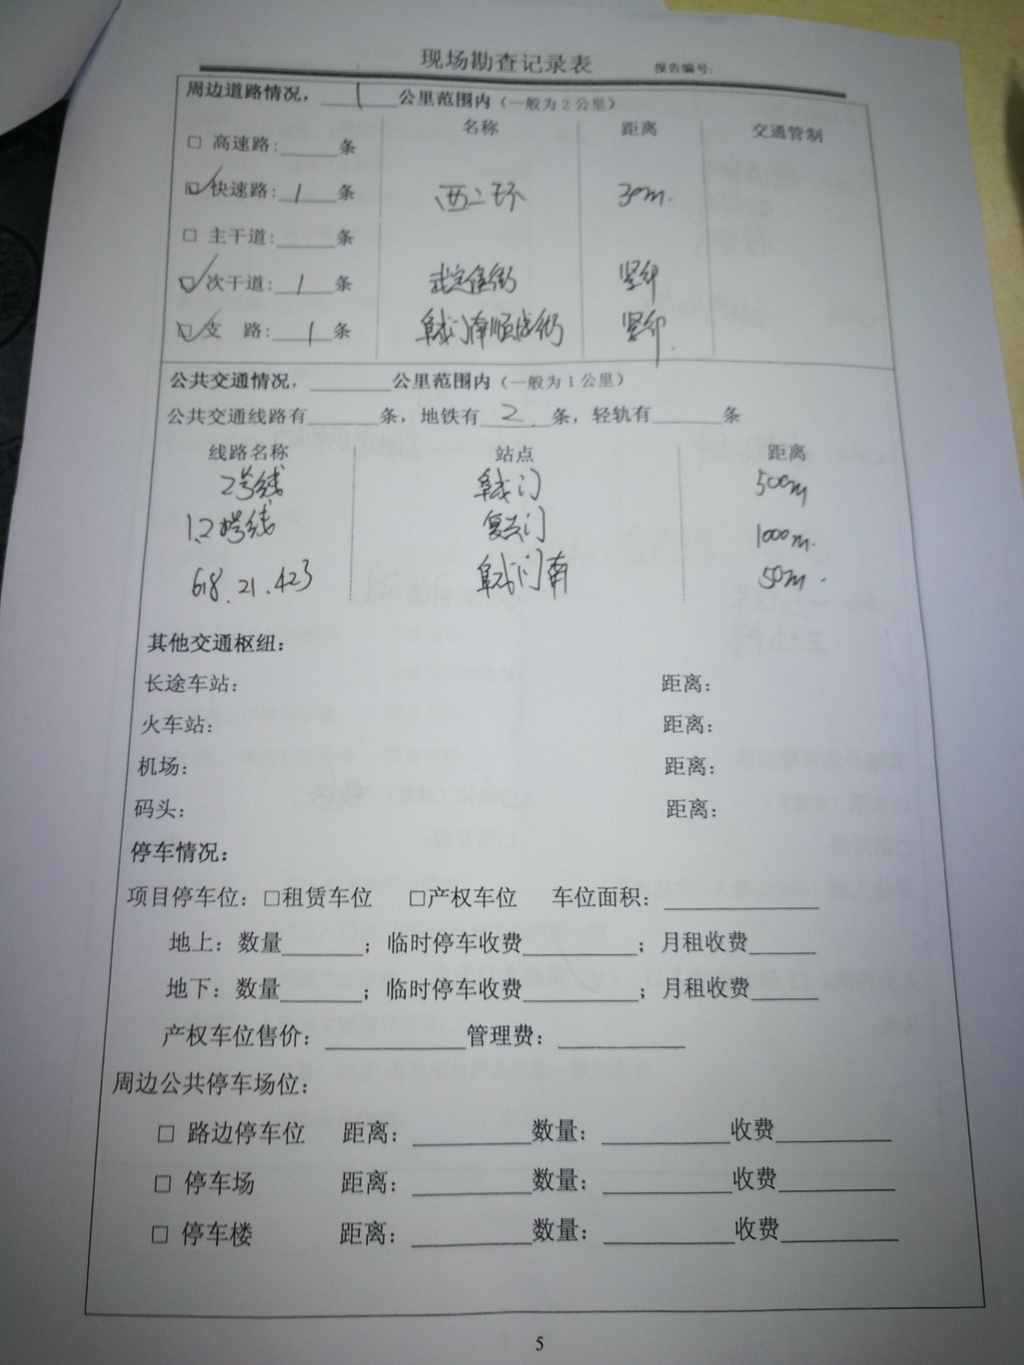 现场勘查记录表 报告编号:
周边道路情况，1公里范围内（一般为2公里）
名称 距离 交通管制
□ 高速路:______条
☑ 快速路: 1 条 西二环 30m.
□ 主干道:______条
☑ 次干道: 1 条 武定侯街 紧邻
☑ 支 路: 1 条 阜成门南顺城街 紧邻.
公共交通情况，________公里范围内（一般为1公里）
公共交通线路有_______条，地铁有 2 条，轻轨有_______条
线路名称 站点 距离
2号线 阜成门 500m
1.2号线 复兴门 1000m.
618.21.423 阜成门南 50m.
其他交通枢纽：
长途车站： 距离：
火车站： 距离：
机场： 距离：
码头： 距离：
停车情况：
项目停车位：□租赁车位 □产权车位 车位面积：____________
地上：数量_______；临时停车收费_________；月租收费_____
地下：数量_______；临时停车收费_________；月租收费_____
产权车位售价：___________管理费：__________
周边公共停车场位：
□ 路边停车位 距离：_________数量：__________收费_________
□ 停车场 距离：_________数量：__________收费_________
□ 停车楼 距离：_________数量：__________收费_________
5